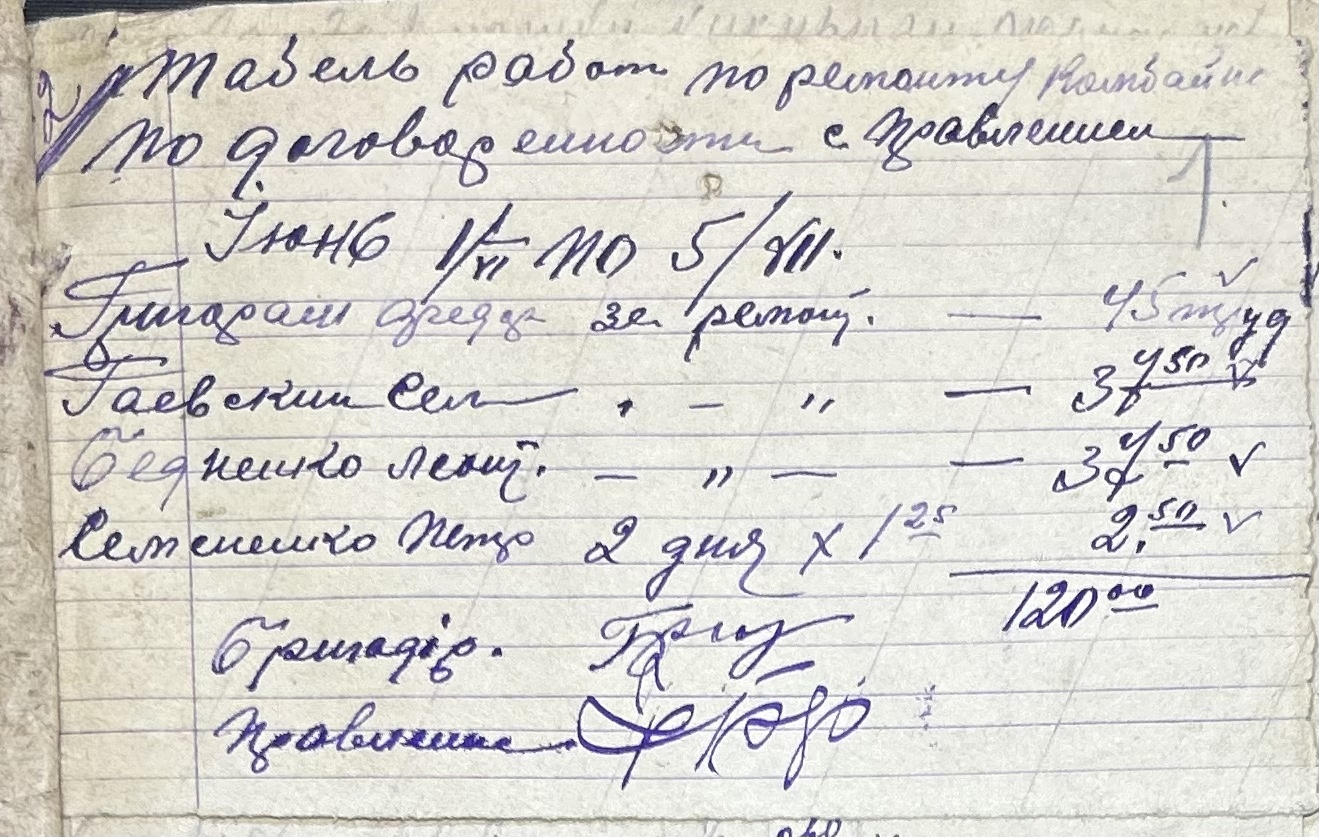 Табель работ по ремонту комбайна
по договоренности с Правлением
Июнь 1/VI по 5/VII.
Григораш за ремонт. — 45 труд
Гаевский Сем — „ — 3
Бедненко Леонт. — „ — — 3
Семененко Петро 2 дня х 1 25 2.50
120 00
Бригадір.
Правление